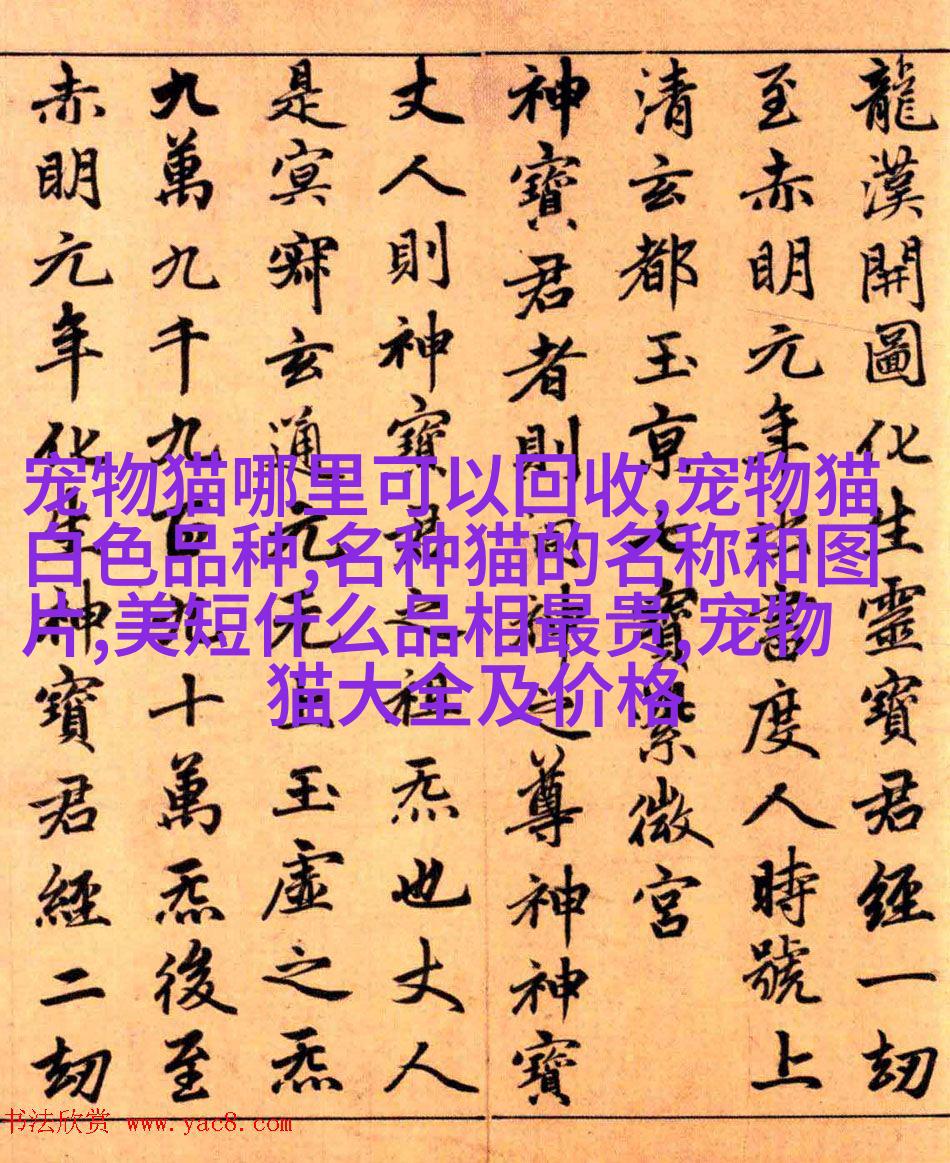 龍漢開圖化生靈寶君經一劫
至赤明元年出書度人時號上
清玄都玉京七寶紫微宮
神寶君者則洞神之尊神神寶
丈人則神寶君之祖炁也丈人
是冥寂玄通元无上玉虛之炁
九萬九千九百九十萬炁後至
赤明元年化生神寶君經二劫
宠物猫哪里可以回收,宠物猫
白色品种,名种猫的名称和图
片,美短什么品相最贵,宠物
猫大全及价格
书法欣赏 www.yac8.com